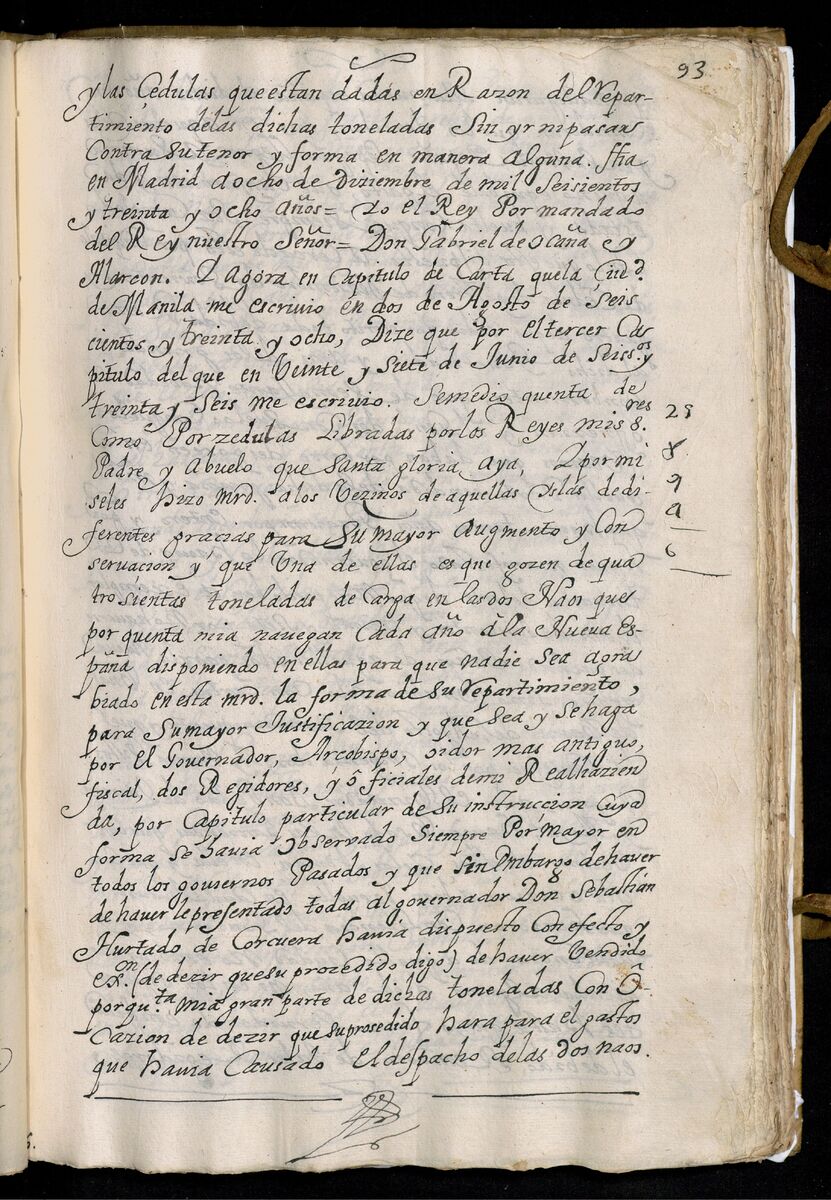 93
y las Çedulas que estan dadas en Razon del Repar-
timiento de las dichas toneladas Sin yr ni pasar
Contra Su tenor y forma en manera alguna. fha
en Madrid a ocho de Diziembre de mil Seisientos
y treinta y ocho años = Yo el Rey Por mandado
del Rey nuestro Señor = Don Gabriel de Ocaña y
Alarcon. Y agora en Capitulo de Carta que la Çiud.d
de Manila me escrivio en dos de Agosto de Seis
cientos y treinta y ocho, Dize que por el tercer Ca
pitulo del que en Veinte y Siete de Junio de Seiss.os y
treinta y Seis me escrivio. Se me dio quenta de
Como Por zedulas Libradas por los Reyes mis S.res
Padre y Abuelo que Santa gloria aya, Y por mi
seles hizo mrd. a los Vezinos de aquellas Yslas de di-
ferentes gracias para Su mayor augmento y Con
servacion y que Una de ellas es que gozen de qua
tro sientas toneladas de Carga en las dos Naos que
por quenta mia navegan Cada año â la Nueva Es-
paña disponiendo en ellas para que nadie Sea agra
biado en esta mrd. la forma de Su repartimiento,
para Su mayor Justificazion y que Sea y Se haga
por El Governador, Arcobispo, oidor mas antiguo,
fiscal, dos Regidores, y ô ficiales de mi Real hazien
da, por Capitulo particular de Su instruccion Cuya
forma Se havia observado Siempre Por mayor en
todos los gouiernos Pasados y que Sin Embargo de haver
de haver le presentado todas al governador Don Sebastian
Hurtado de Corcuera havia dispuesto Con efecto y
ex.on (de dezir que su prozedido digo) de haver Vendido
por qu.ta mia gran parte de dichas toneladas Con Ô-
Cazion de dezir que su prosedido hara para el gastos
que havia Causado El despacho de las dos naos.
29
8
9
a
6